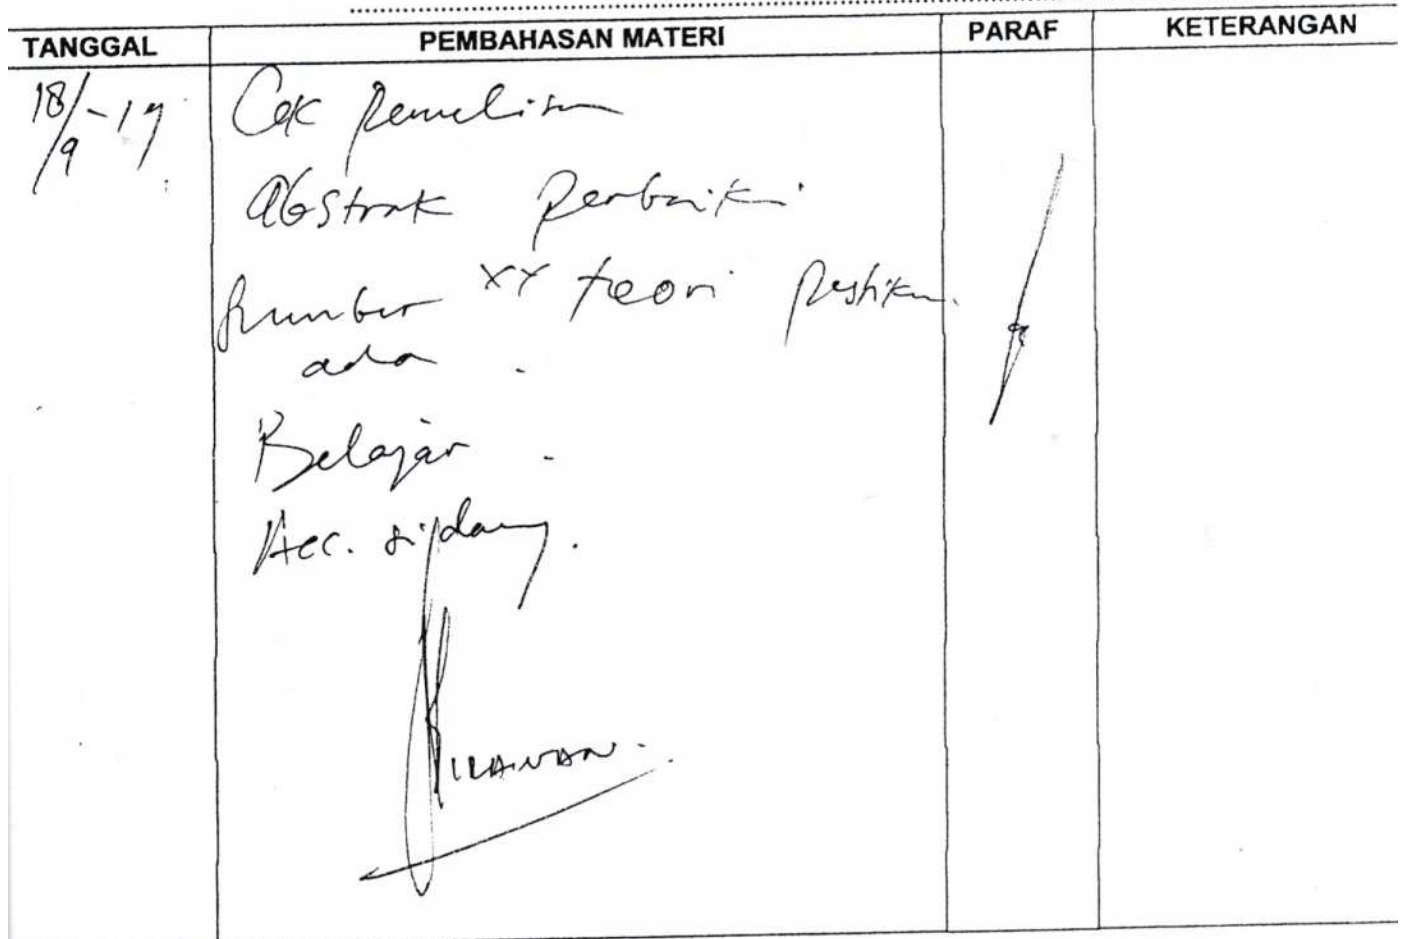 TANGGAL PEMBAHASAN MATERI PARAF KETERANGAN
18/9-19 Cek Penulisan
Abstrak Perbaiki
Sumber xx teori Pastikan
ada.
Belajar.
Acc. sidang.